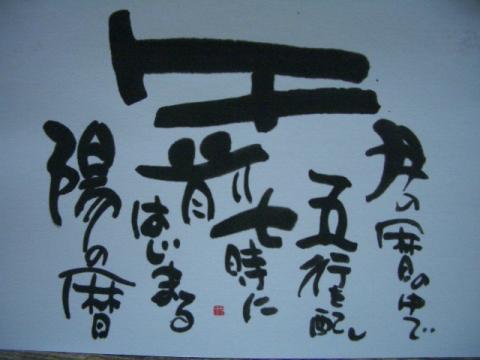 月の暦の中で
五行を配し
午前七時に
はじまる
陽の暦